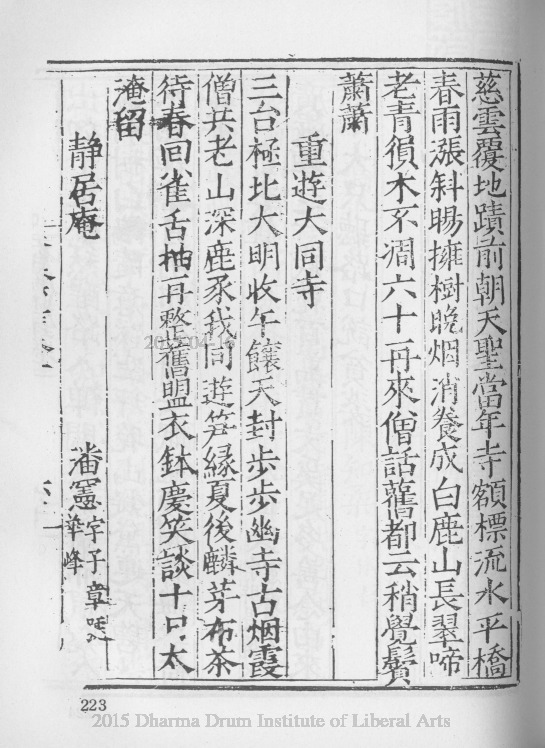 慈雲覆地蹟前朝天聖當年寺額標流水平橋
春雨漲斜暘擁樹晚烟消養成白鹿山長翠啼
老青猿木不凋六十一再來僧話舊都云稍覺鬢
蕭蕭
重遊大同寺
三台極北大明收午饟天封步步幽寺古烟霞
僧共老山深鹿豕我同遊笋緣夏後麟芽布茶
待春回雀舌抽再整舊盟衣鉢慶笑談十日太
淹留
静居庵
潘憲字子章
華峰
2015/04/16
223
2015 Dharma Drum Institute of Liberal Arts